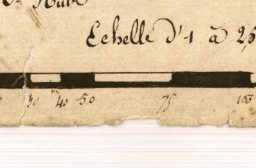 Echelle d'1 à 25
30 40 50 75 100